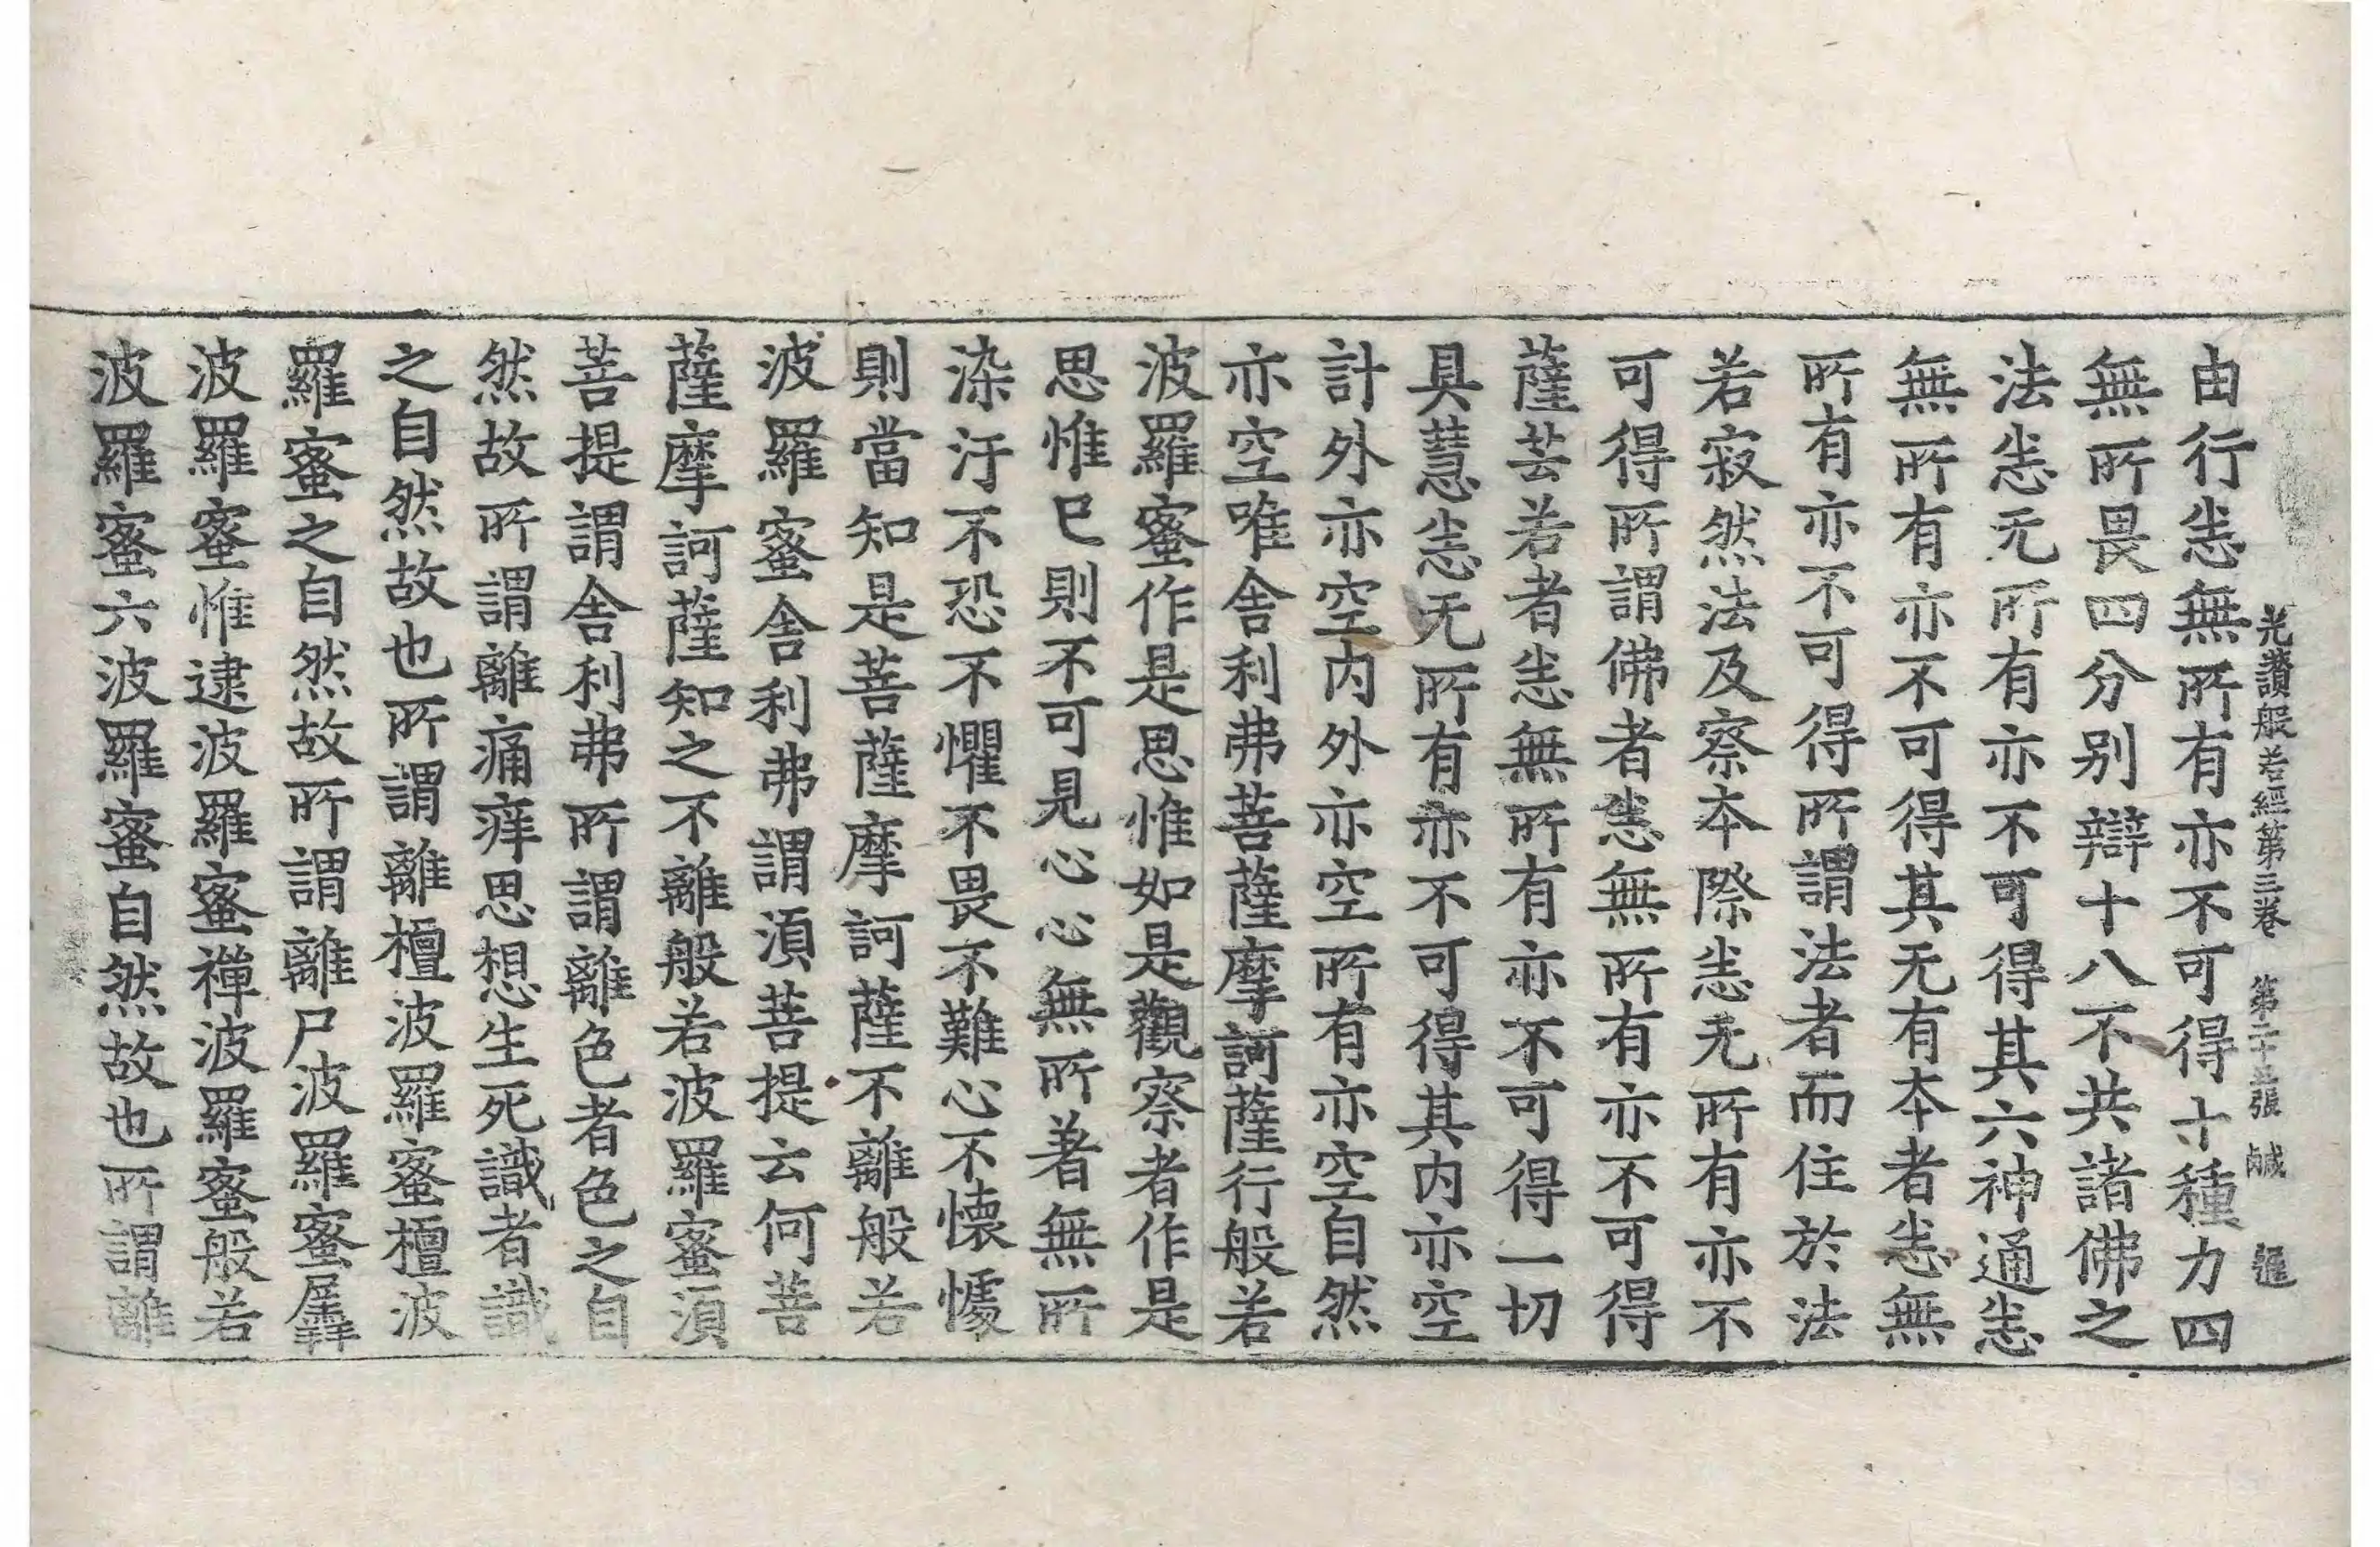 光讚般若經第三卷 第二十五張 鹹
由行恙無所有亦不可得十種力四
無所畏四分别辯十八不共諸佛之
法恙无所有亦不可得其六神通恙
無所有亦不可得其无有本者恙無
所有亦不可得所謂法者而住於法
若寂然法及察本際恙无所有亦不
可得所謂佛者恙無所有亦不可得
薩芸若者恙無所有亦不可得一切
具慧恙无所有亦不可得其内亦空
計外亦空内外亦空所有亦空自然
亦空唯舎利弗菩薩摩訶薩行般若
波羅蜜作是思惟如是觀察者作是
思惟已則不可見心心無所著無所
染汙不恐不懼不畏不難心不懐懅
則當知是菩薩摩訶薩不離般若
波羅蜜舎利弗謂湏菩提云何菩
薩摩訶薩知之不離般若波羅蜜湏
菩提謂舎利弗所謂離色者色之自
然故所謂離痛痒思想生死識者識
之自然故也所謂離檀波羅蜜檀波
羅蜜之自然故所謂離尸波羅蜜羼
波羅蜜惟逮波羅蜜禪波羅蜜般若
波羅蜜六波羅蜜自然故也所謂離